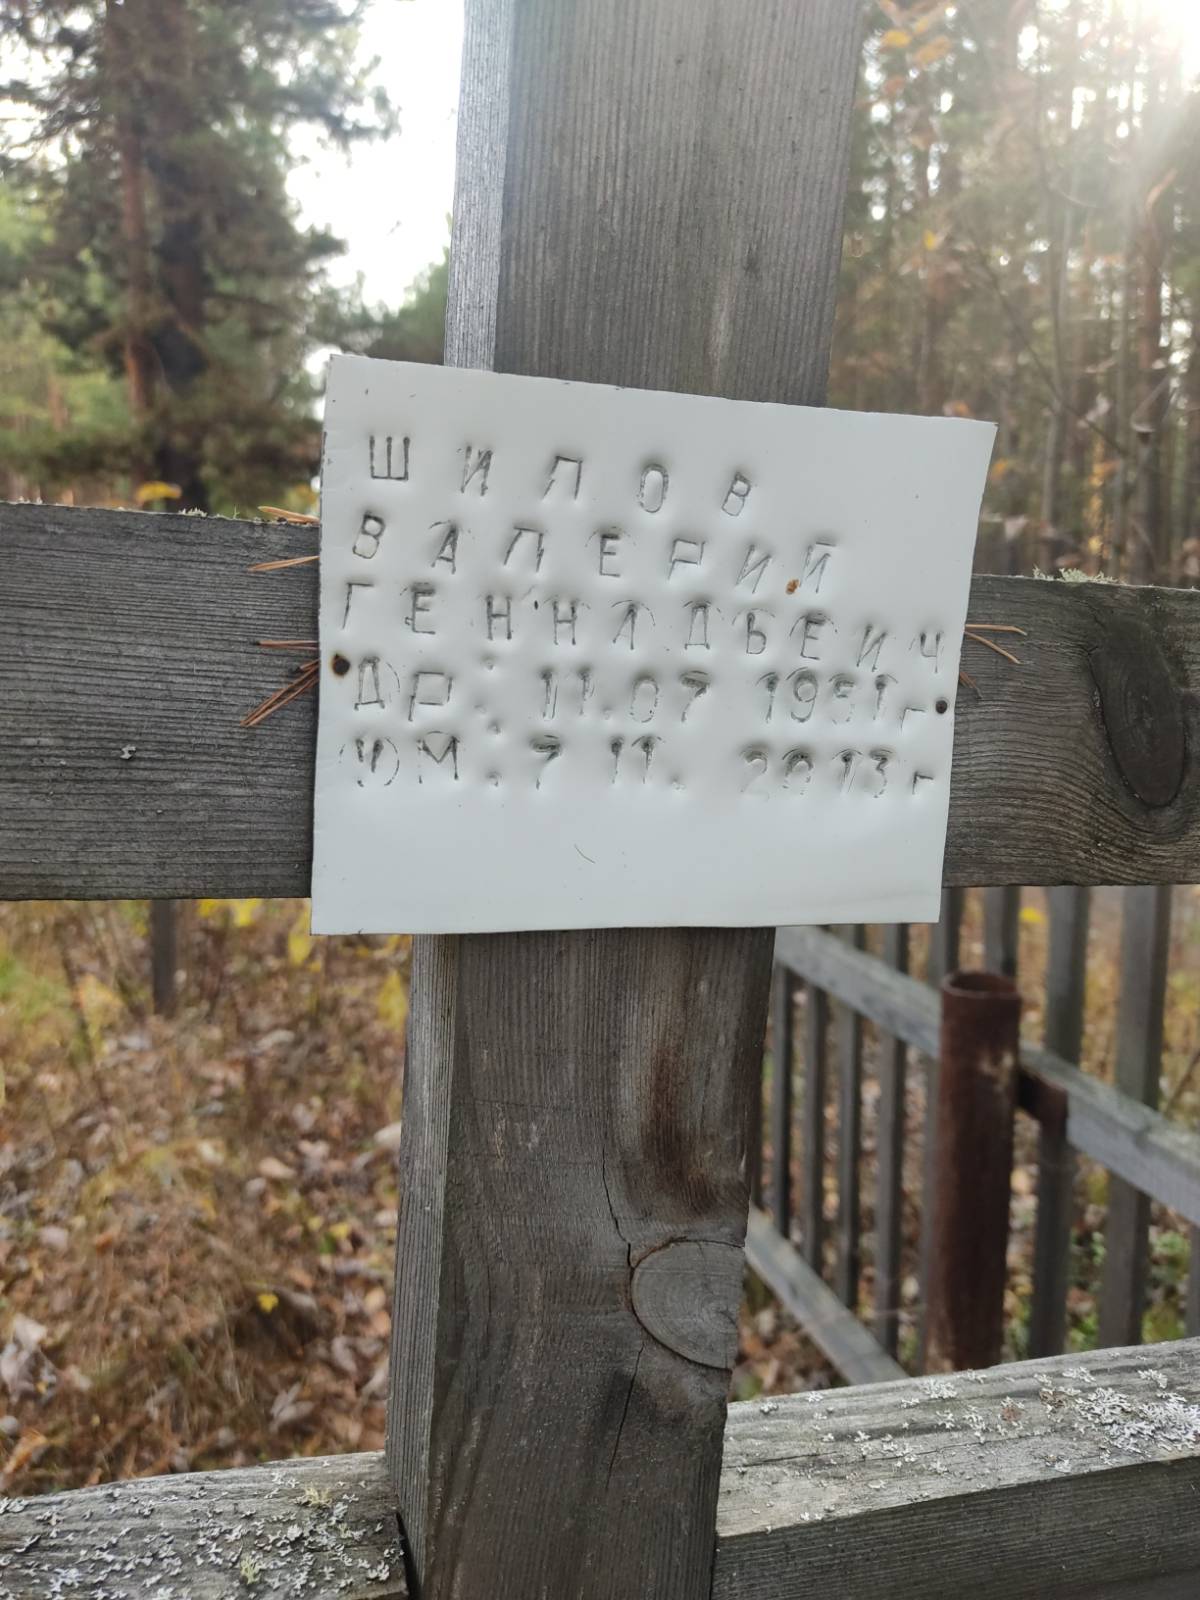 ШИЛОВ
ВАЛЕРИЙ
ГЕННАДЬЕИЧ
ДР. 11.07 1951г
УМ. 7 11. 2013г